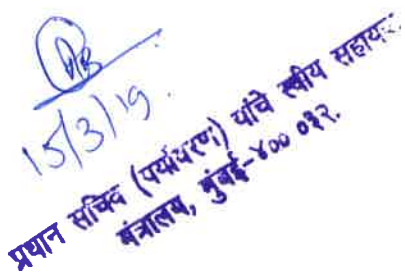 15/3/19.
प्रधान सचिव (पर्यावरण) यांचे स्वीय सहाय
मंत्रालय, मुंबई-४०० ०३२.